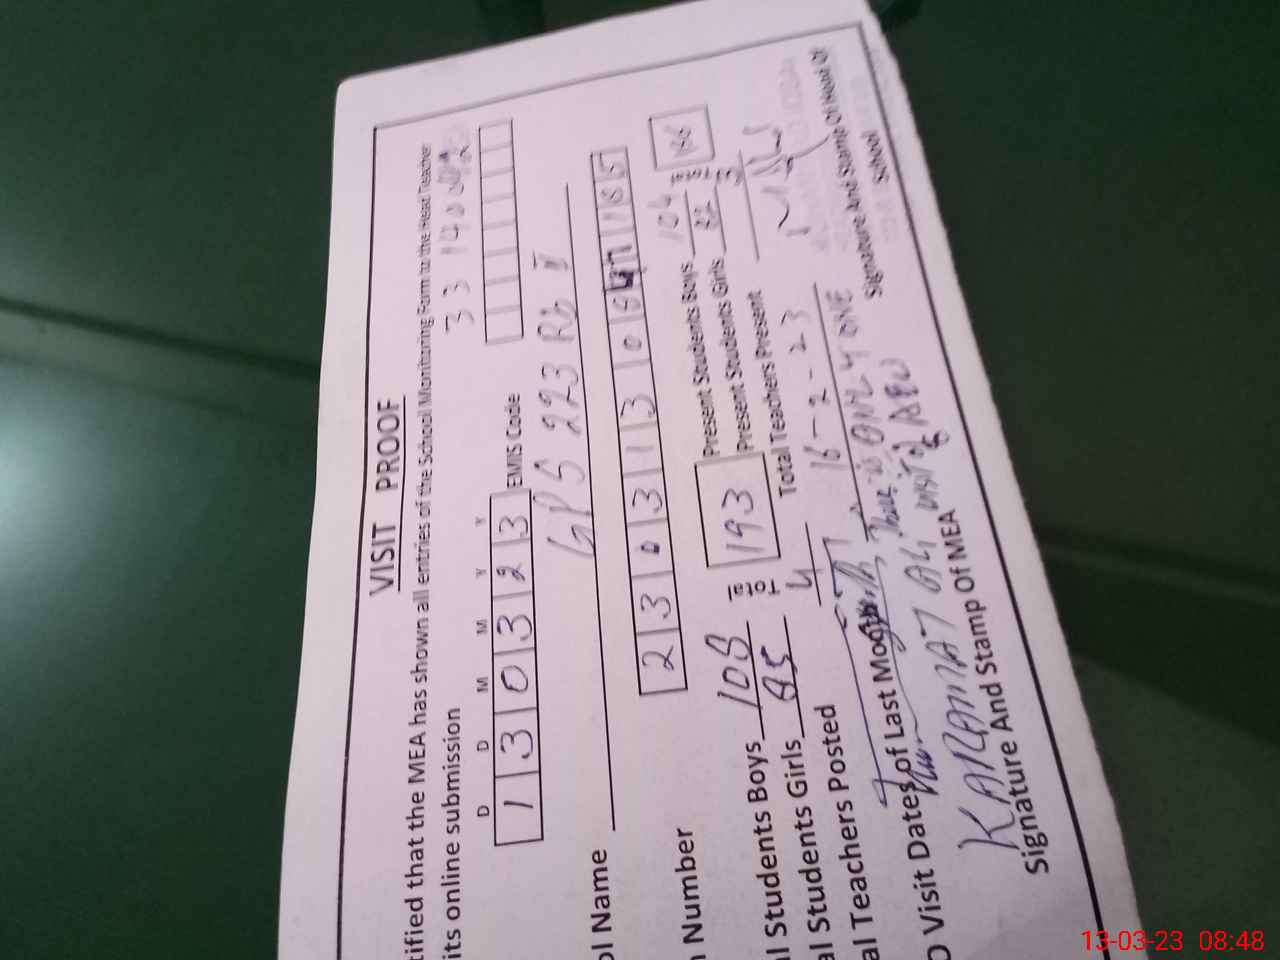 VISIT PROOF
tified that the MEA has shown all entries of the School Monitoring Form to the Head Teacher
its online submission
D D M M Y Y
1 3 0 3 2 3 EMIS Code
ol Name GPS 223 RB II
n Number 2 3 0 3 1 3 0 1 8 5
l Students Boys 108 Total 193 Present Students Boys 104
al Students Girls 85 Present Students Girls 82
al Teachers Posted 4 Total Teachers Present 3
O Visit Dates of Last Month 16-2-23
There is ONLY ONE
visit of AEO
KARAMAT ALI
Signature And Stamp Of MEA
Signature And Stamp Of Head Of School
13-03-23 08:48